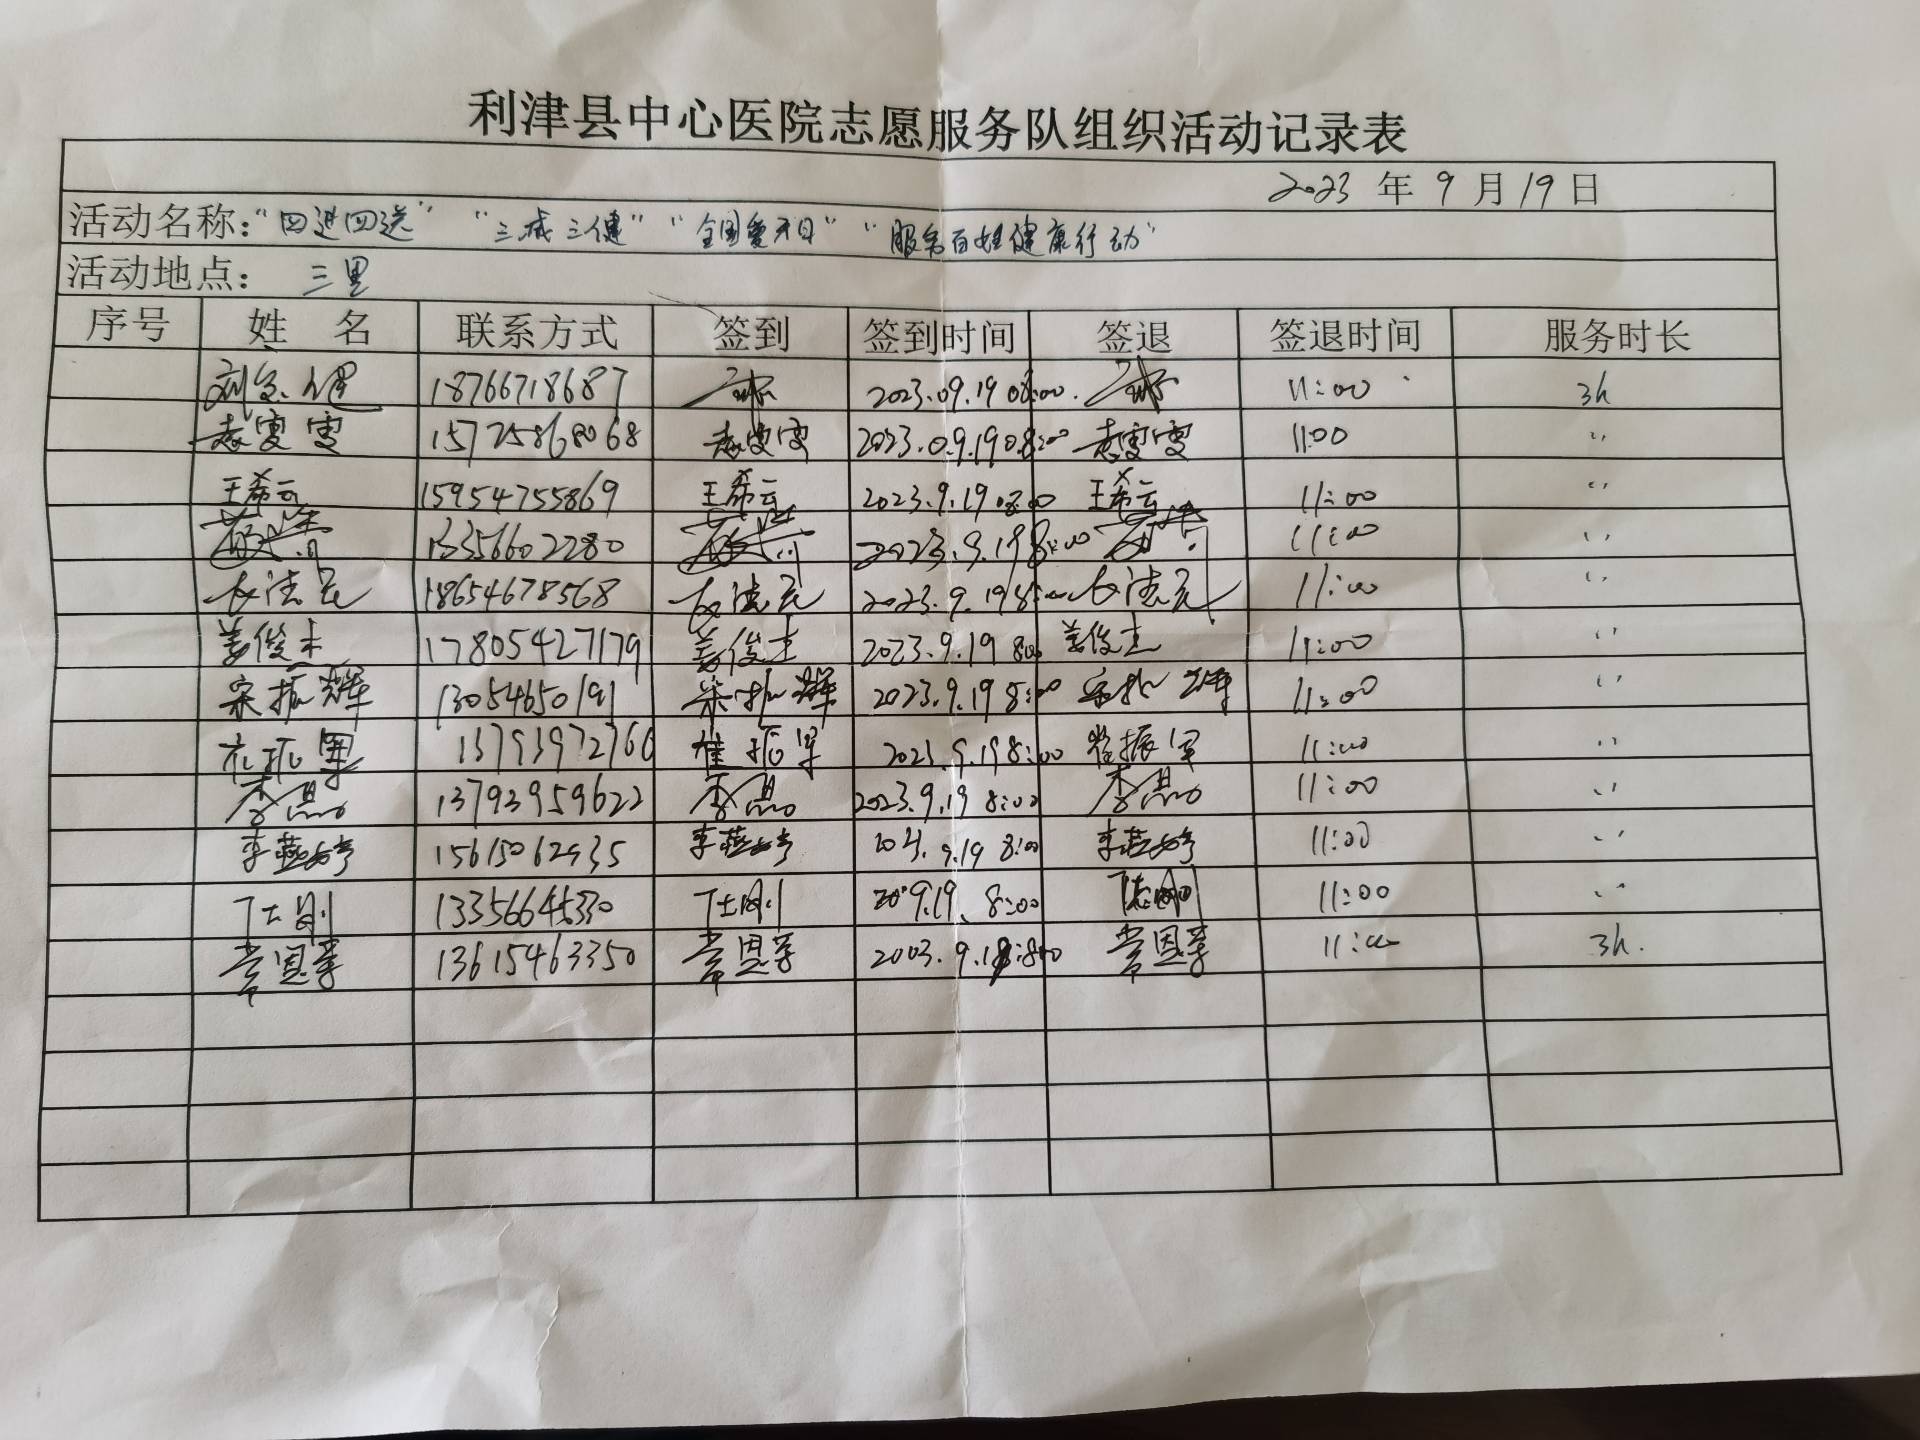 利津县中心医院志愿服务队组织活动记录表
2023 年 9 月 19 日
活动名称："四进四送" "三减三健" "全国爱牙日" "服务百姓健康行动"
活动地点： 三里
序号 姓 名 联系方式 签到 签到时间 签退 签退时间 服务时长
18766718687 2023.09.19 08:00. 11:00 3h
袁雯雯 15725868068 袁雯雯 2023.09.19 08:00 袁雯雯 11:00 〃
王希云 15954755869 王希云 2023.9.19 08:00 王希云 11:00 〃
13356602280 2023.9.19 8:00 11:00 〃
18654678568 2023.9.19 8:00 11:00 〃
姜俊杰 17805427179 姜俊杰 2023.9.19 8:00 姜俊杰 11:00 〃
宋振辉 13054650191 宋振辉 2023.9.19 8:00 宋振辉 11:00 〃
13793972766 崔振军 2023.9.19 8:00 崔振军 11:00 〃
李昂 13793959622 李昂 2023.9.19 8:00 李昂 11:00 〃
李燕婷 李燕婷 9.19 8:00 李燕婷 11:00 〃
任刚 任刚 9.19. 8:00 11:00 〃
常恩孝 13615463350 常恩孝 常恩孝 11:00 3h.